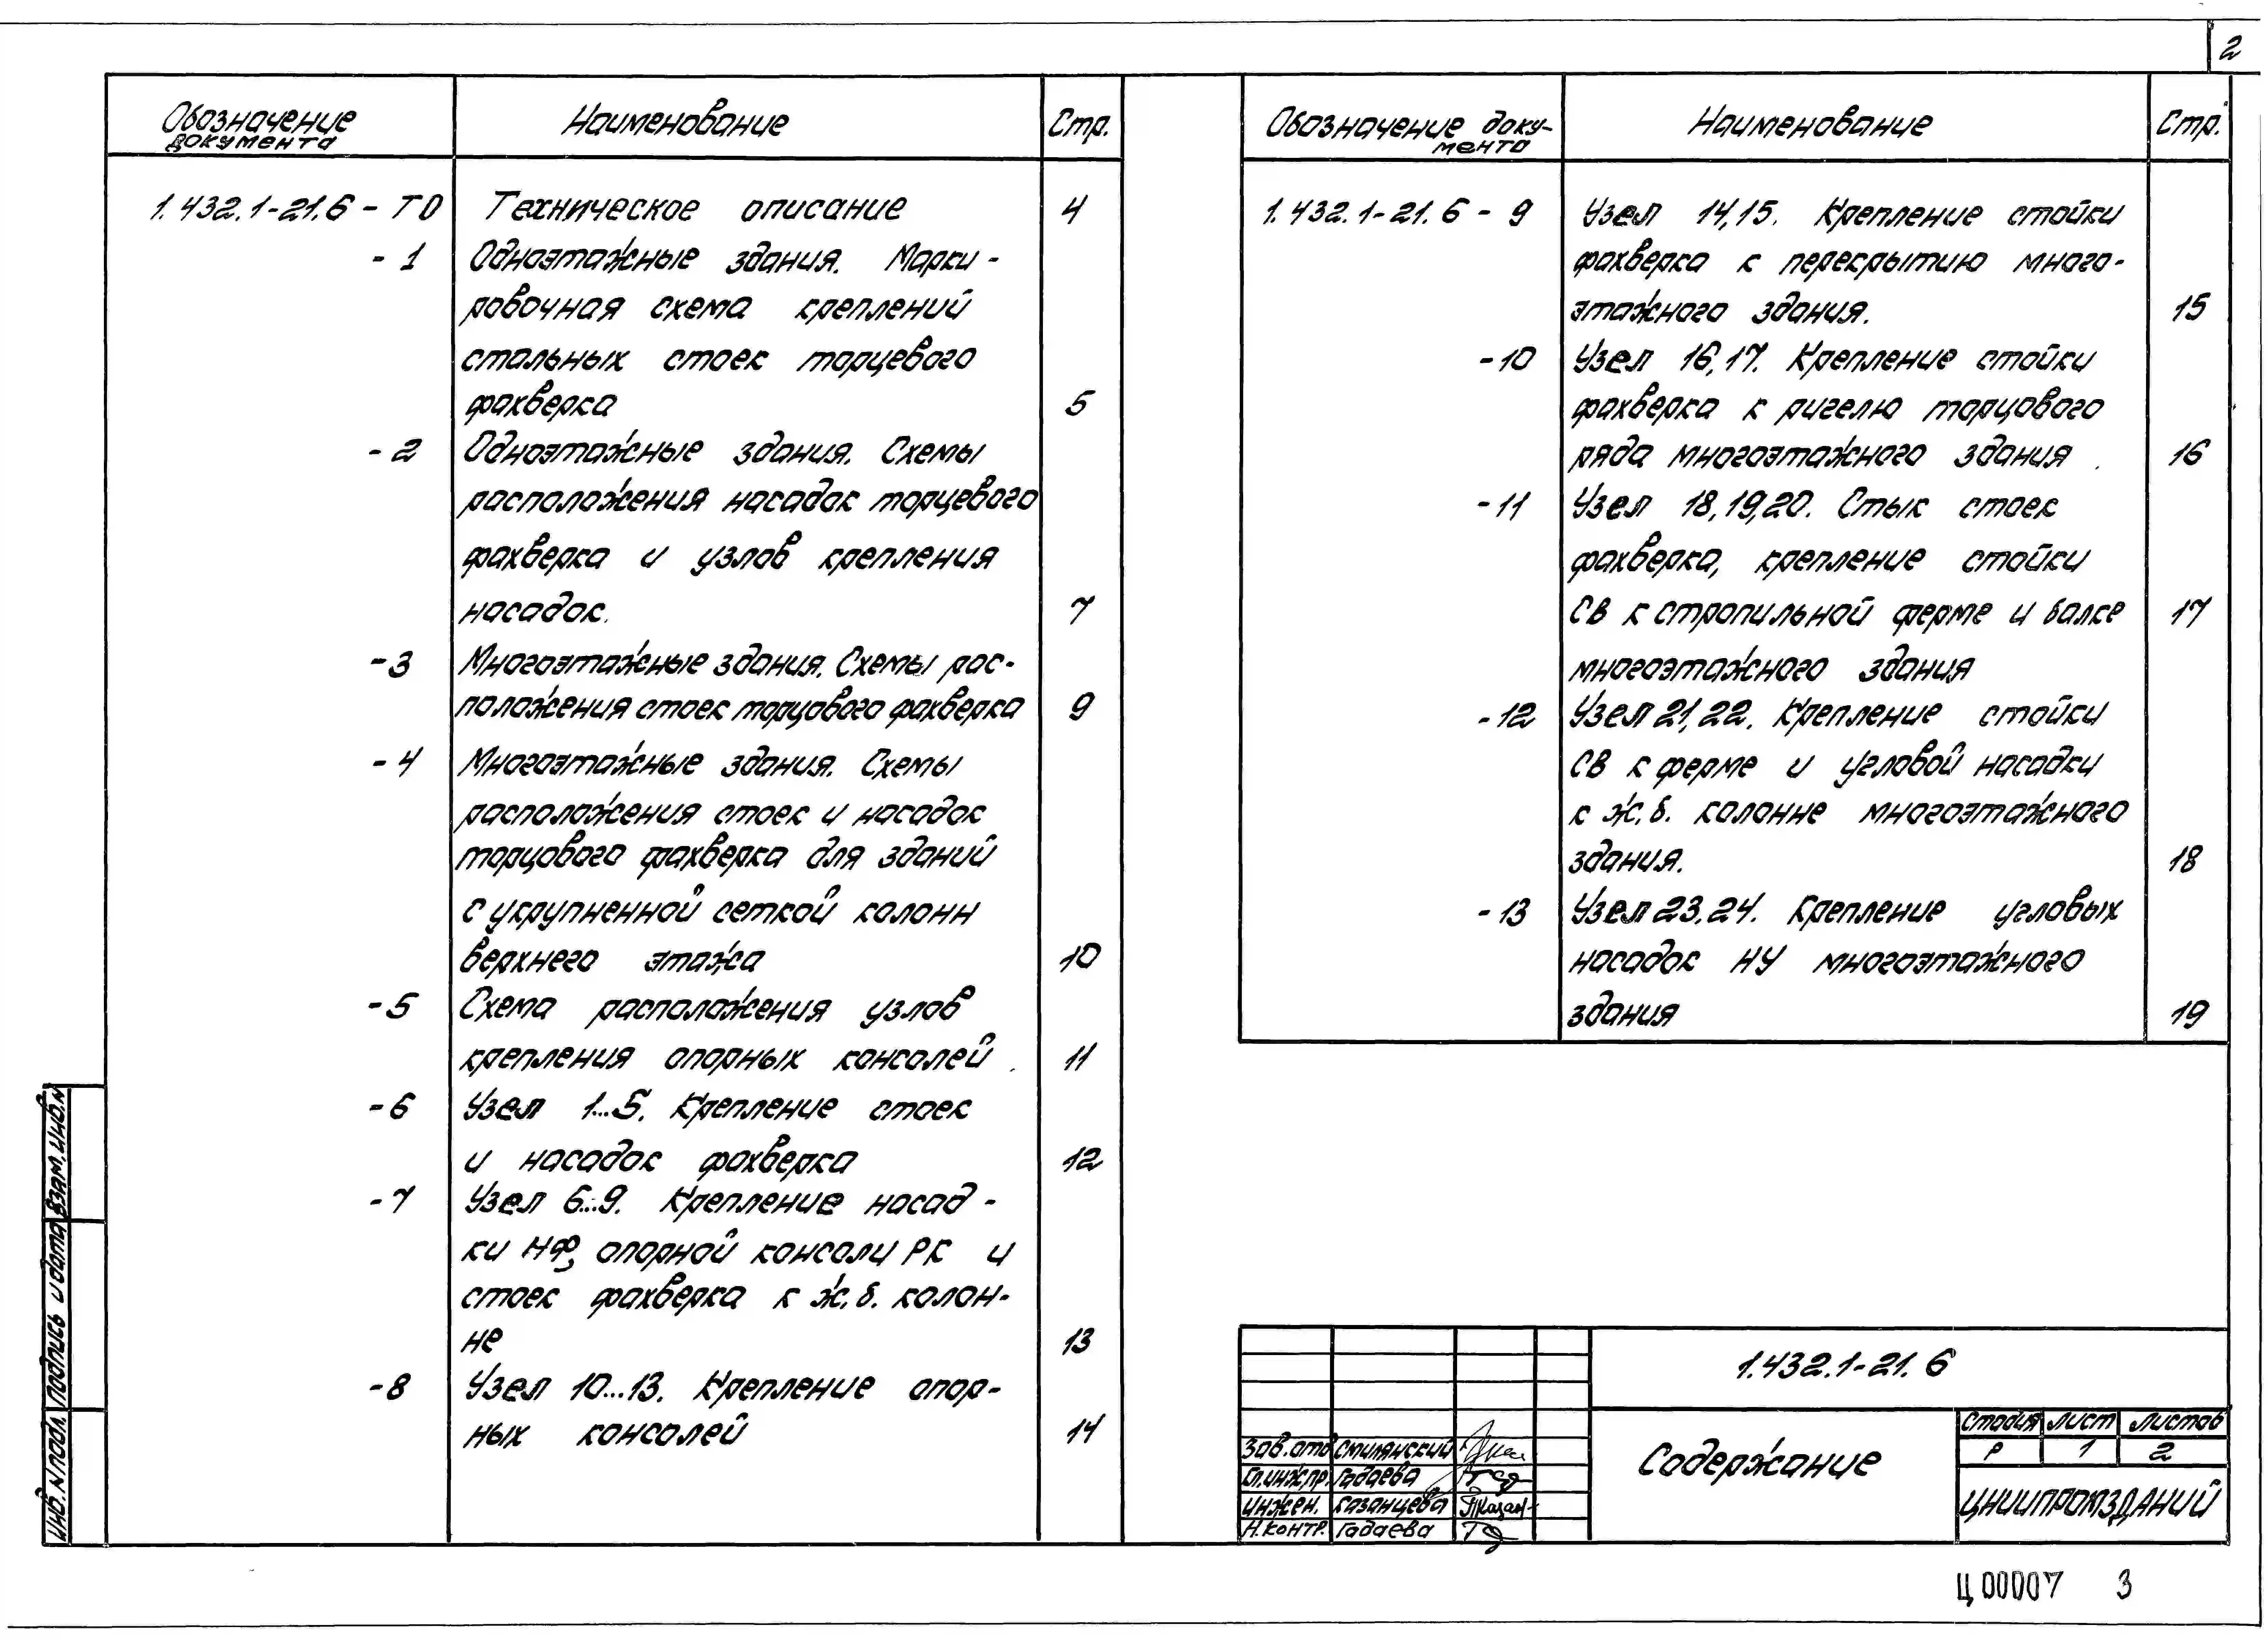 2
Обозначение документа Наименование Стр.
1.432.1-21.6 - ТО Техническое описание 4
- 1 Одноэтажные здания. Марки-
ровочная схема креплений
стальных стоек торцевого
фахверка 5
- 2 Одноэтажные здания. Схемы
расположения насадок торцевого
фахверка и узлов крепления
насадок. 7
- 3 Многоэтажные здания. Схемы рас-
положения стоек торцового фахверка 9
- 4 Многоэтажные здания. Схемы
расположения стоек и насадок
торцового фахверка для зданий
с укрупненной сеткой колонн
верхнего этажа 10
- 5 Схема расположения узлов
крепления опорных консолей. 11
- 6 Узел 1...5. Крепление стоек
и насадок фахверка 12
- 7 Узел 6...9. Крепление насад-
ки НФ, опорной консоли РК и
стоек фахверка к ж.б. колон-
не 13
- 8 Узел 10...13. Крепление опор-
ных консолей 14
Обозначение доку-
мента Наименование Стр.
1.432.1-21.6 - 9 Узел 14,15. Крепление стойки
фахверка к перекрытию много-
этажного здания. 15
- 10 Узел 16,17. Крепление стойки
фахверка к ригелю торцового
ряда многоэтажного здания. 16
- 11 Узел 18,19,20. Стык стоек
фахверка, крепление стойки
СВ к стропильной ферме и балке 17
многоэтажного здания
- 12 Узел 21,22. Крепление стойки
СВ к ферме и угловой насадки
к ж.б. колонне многоэтажного
здания. 18
- 13 Узел 23,24. Крепление угловых
насадок НУ многоэтажного
здания 19
Инв. N подл. Подпись и дата Взам. инв. N
1.432.1-21.6
Зав. отд Смилянский
Гл.инж.пр. Гадаева
Инжен. Казанцева
Н.контр. Гадаева
Содержание
Стадия Лист Листов
Р 1 2
ЦНИИПРОМЗДАНИЙ
Ц00007 3